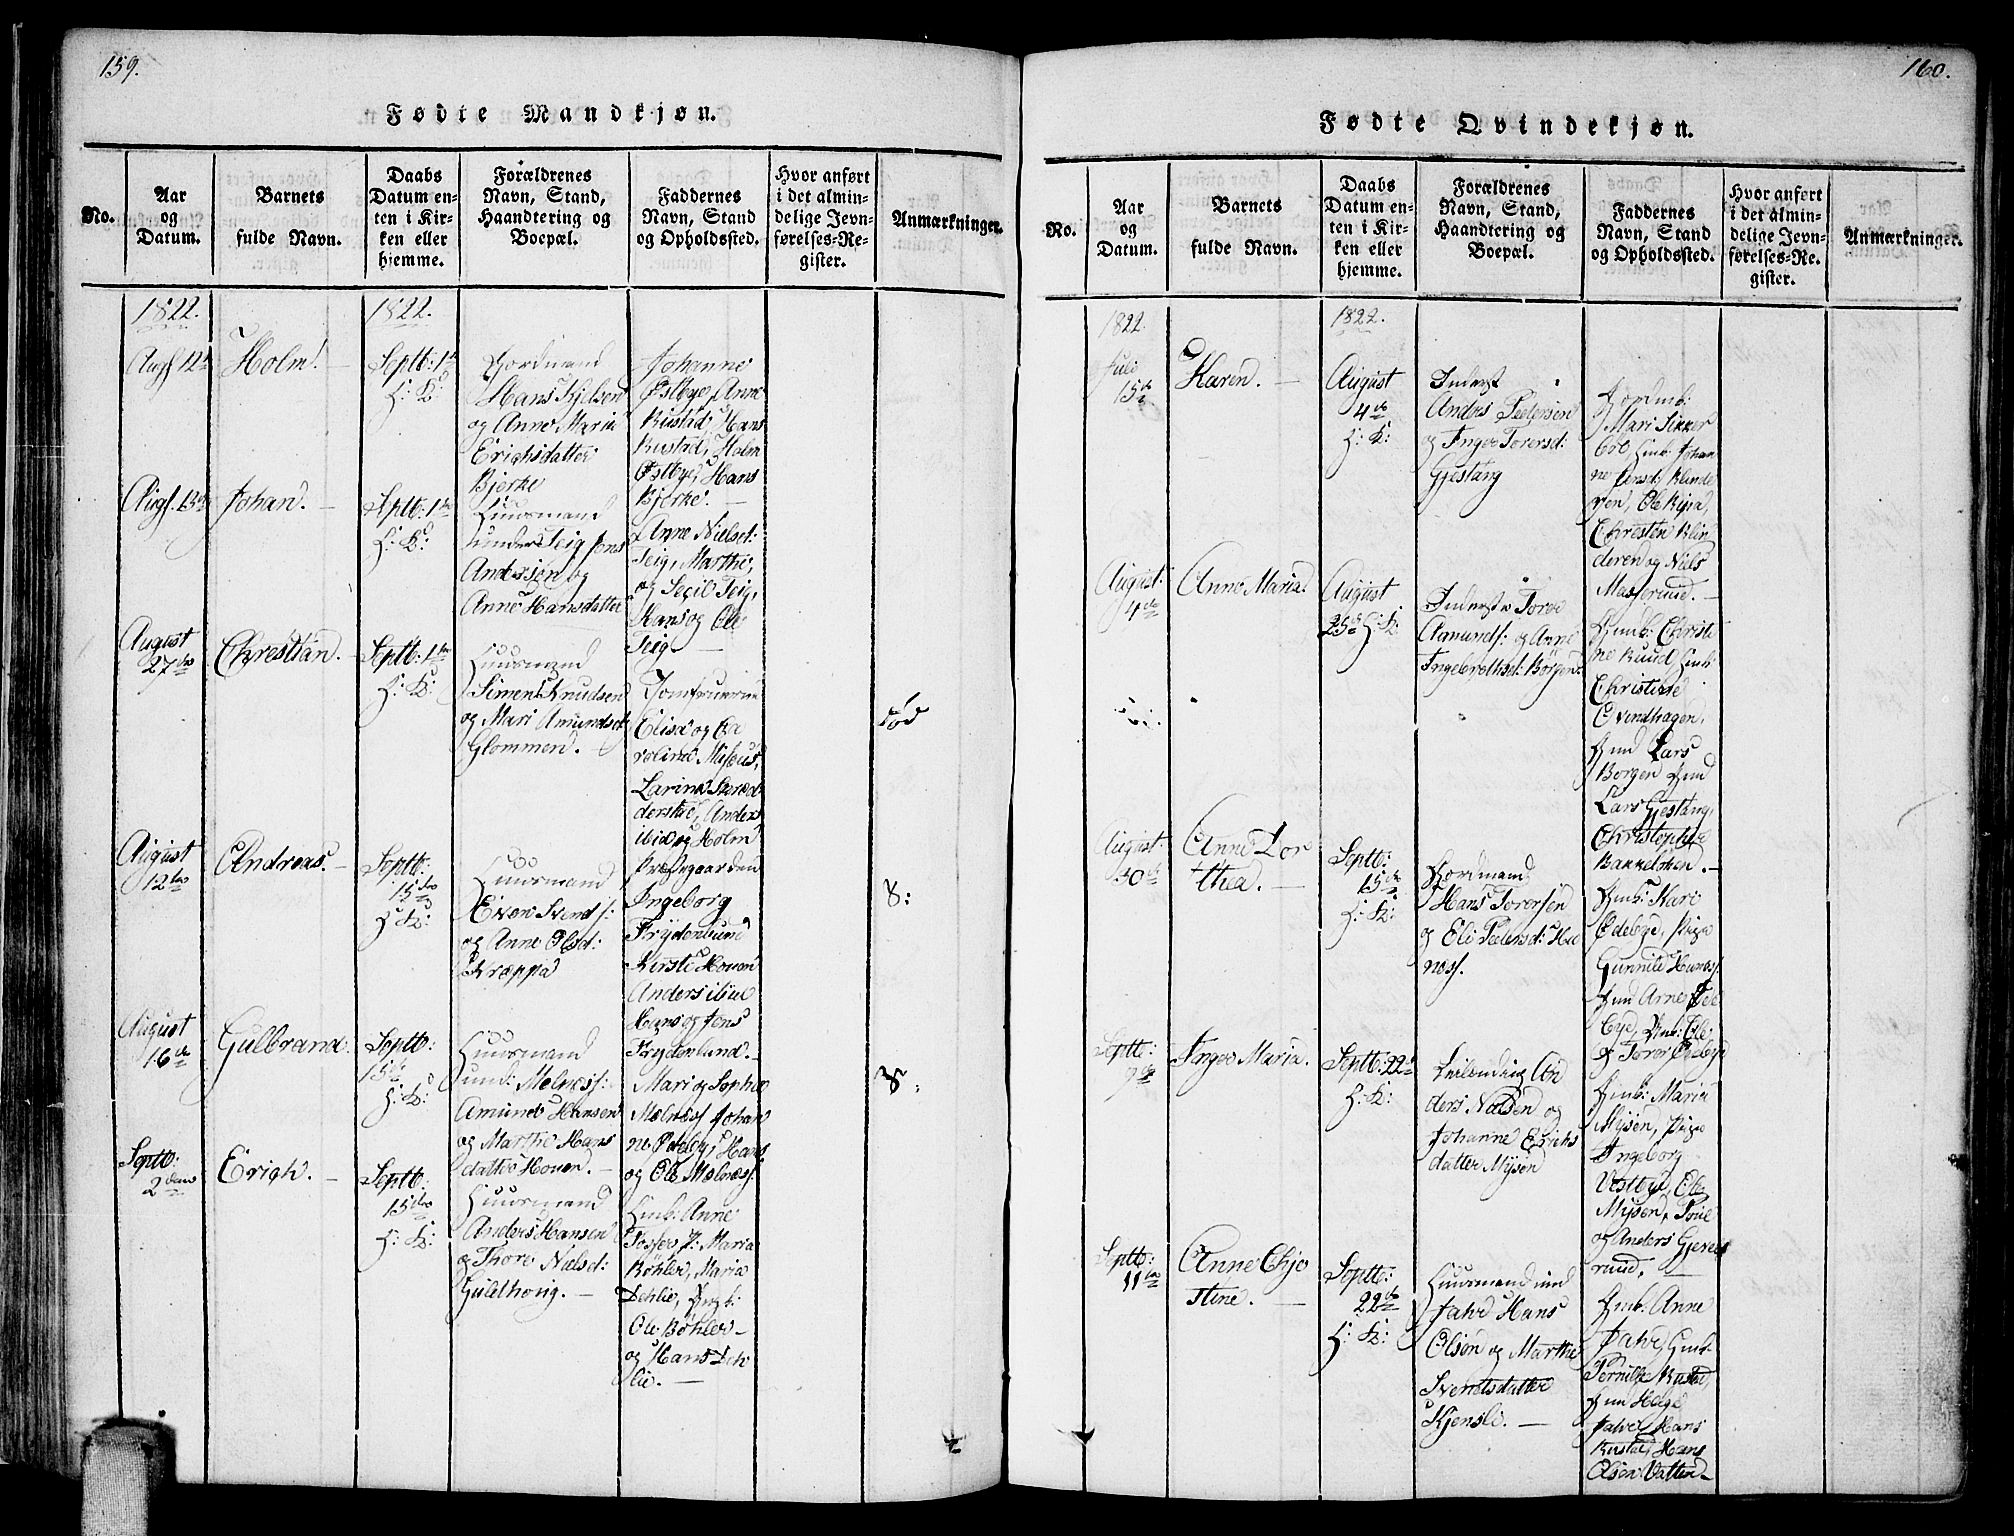 159.
Fødte Mandkjøn.
No.
Aar
og
Datum.
Barnets
fulde Navn.
Daabs
Datum en-
ten i Kir-
ken eller
hjemme.
Forældrenes
Navn, Stand,
Haandtering og
Boepæl.
Faddernes
Navn, Stand
og Opholdssted.
Hvor anført
i det almin-
delige Jevn-
førelses-Re-
gister.
Anmærkninger.
1822.
1822.
Augs 12
Holm.
Septb: 1
H: K:
Gordmand
Hans Kjelsen
og Anne Maria
Erichsdatter
Bjerke
Johanne
Østbye, Anne
Rustad, Hans
Rustad, Holm
Østbye, Hans
Bjerke.
Augs. 13
Johan.
Septb: 1
H: K:
Huusmand
under Teig Jens
Andersen og
Anne Hansdatter
Anne Nielsd:
Teig, Marthe,
og Secil Teig,
Hans og Ole
Teig
August
27
Chrestian.
Septb: 1
H: K:
Huusmand
Simen Knudsen
og Mari Amundsd
Glommen.
Jomfruerne
Elisa og Ca
roline Museus,
Larine
Anders
ibid og Holm
Prestgaarden
August
12
Andreas.
Septb:
15
H: K:
Huusmand
Even Svends:
og Anne Olsd:
Kræppa
Ingeborg
Frydenlund
Kersti Houen
Anders ibid
Hans og Jens
Frydenlund.
8:
August
16
Gulbrand.
Septb:
15
H: K:
Huusmand
und: Melness:
Amund Hansen
og Marthe Hans
datter Houen.
Mari og Sophie
Melness Johan
ne Ødeby, Hans
og Ole Melness.
Septb:
2
Erich.
Septb:
15
H: K:
Huusmand
Anders Hansen
og Thore Nielsd:
Guldhoug.
Gmb: Anne
P: Maria
Bøhler, Maria
Dehlie,
Ole Bøhler
og Hans Deh
lie.
160.
Fødte Qvindekjøn.
No.
Aar
og
Datum.
Barnets
fulde Navn.
Daabs
Datum en-
ten i Kir-
ken eller
hjemme.
Forældrenes
Navn, Stand,
Haandtering og
Boepæl.
Faddernes
Navn, Stand
og Opholdssted.
Hvor anført
i det almin-
delige Jevn-
førelses-Re-
gister.
Anmærkninger.
1822
1822.
Juli
15
Karen.
August
4
H: K:
Inderst
Andrs Pedersen
og Inger Torersd:
Gjestang
Mari Sikker
bøl, Johan
ne
Ole Ripa,
Chresten Blin
deren og Niels
Masserud.
August:
4
Anne Maria.
August
25 H: K:
Inderste Tore
Aamunds: og Anne
Ingebrethsd: Børgen
Christi
ne Ruud
Christine
Ovindhagen,
Lars
Borgen
Lars Gjestang,
Christopher
Bakkeløken.
August:
30
Anne Dor
thea.
Septb:
15
H: K:
Gordmand
Hans Torersen
og Eli Pedersd: Hu
næss.
Kari
Ødebye, Pige
Gunnild Hunæss.
Arne Øde
bye, Ole
og Torer Ødebye
Septb:
9
Inger Maria.
Septb: 22
H: K:
An
ders Nielsen og
Johanne Erichs
datter Mysen
Gmb: Maria
Mysen, Pige
Ingeborg
Vestbye, Ole
Mysen, Poul
og Anders Gjeres
ruud.
Septb:
11
Anne Chje
stine.
Septb:
22
H: K:
Huusmand und
Jahr Hans
Olsen og Marthe
Svendsdatter
Kjensli.
Gmb: Anne
Jahr, Gmb:
Pernille Rustad,
Helge
Jahr, Hans
Rustad, Hans
Olsen Vatten